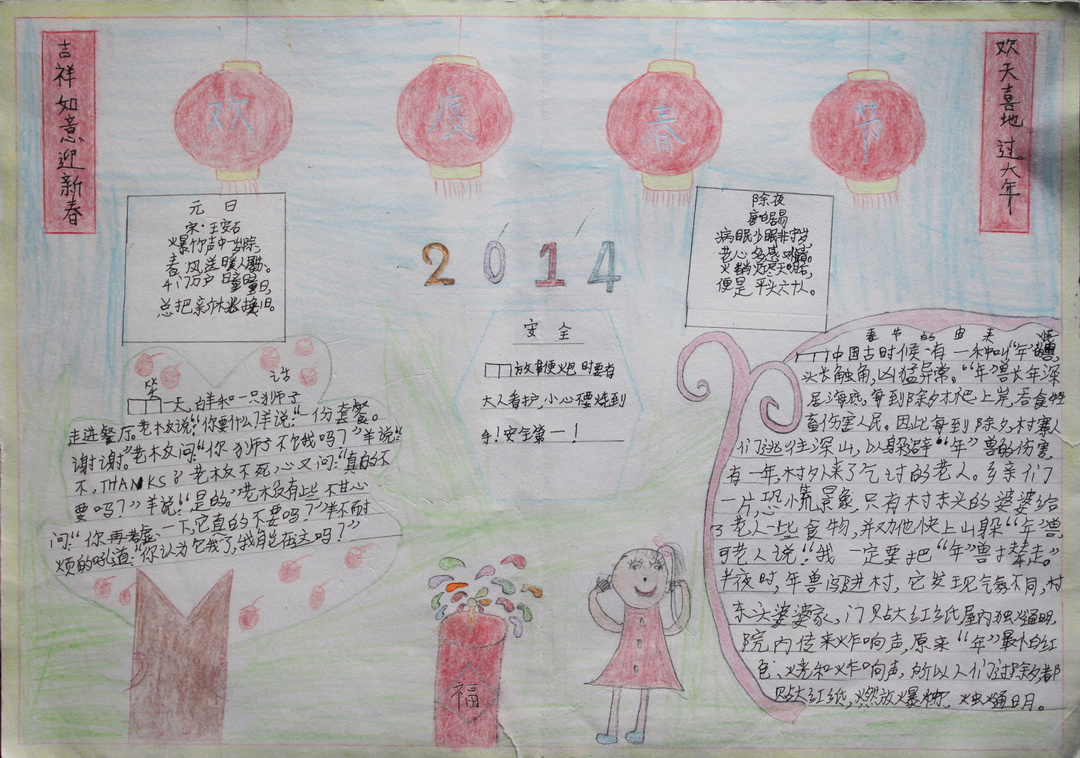 吉祥如意迎新春
欢度春节
欢天喜地过大年
元日
宋·王安石
爆竹声中一岁除,
春风送暖入屠苏。
千门万户曈曈日,
总把新桃换旧。
除夜
唐白居易
病眠少眠非守岁,
老心多感
火销灯尽天明后,
便是平头六十人。
2014
安全
放鞭炮时要有
大人看护,小心不要烧到
手!安全第一!
笑话
一天,一只羊和一只狮子
走进餐厅。老板说:“你要什么?羊说:“一份套餐。
谢谢。”老板问:“你狮子不饿吗?”羊说:“
不,THANKS”老板不死心又问:“真的不
要吗?”羊说:“是的。”老板没有些不甘心
问:“你再考虑一下,它真的不要吗?”羊不耐
烦的吼道:“你认为它饿了,我能在这吗?”
春节的由来
中国古时候有一种叫“年”的兽,
头长触角,凶猛异常。“年”兽长年深
居海底,每到除夕才爬上岸,吞食牲
畜伤害人民。因此每到除夕,村寨人
们逃往深山,以躲避“年”兽的伤害,
有一年,村外来了乞讨的老人。乡亲们
一片恐慌景象,只有村东头的婆婆给
了老人一些食物,并劝他快上山躲“年”兽
可老人说:“我一定要把“年”兽撵走。”
半夜时,年兽闯进村,它发现气氛不同,村
东头婆婆家,门贴大红纸屋内烛火通明,
院内传来炸响声,原来“年”最怕红
色、火光和炸响声,所以人们过除夕都
贴大红纸,燃放爆竹,烛通日月。
福